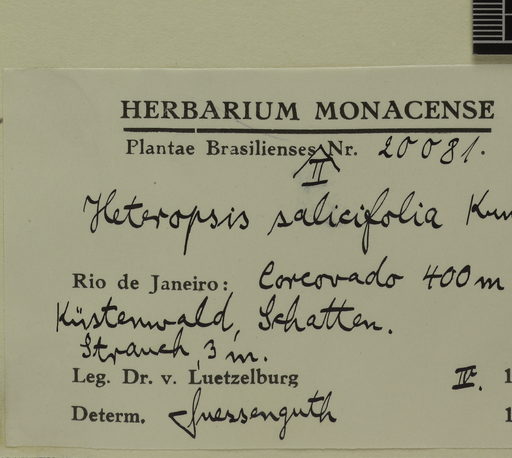 HERBARIUM MONACENSE
Plantae Brasilienses Nr. 20081.
II
Heteropsis salicifolia Kun
Rio de Janeiro: Corcovado 400 m
Küstenwald, Schatten.
Strauch, 3 m.
Leg. Dr. v. Luetzelburg IV. 1
Determ. Suessenguth 1